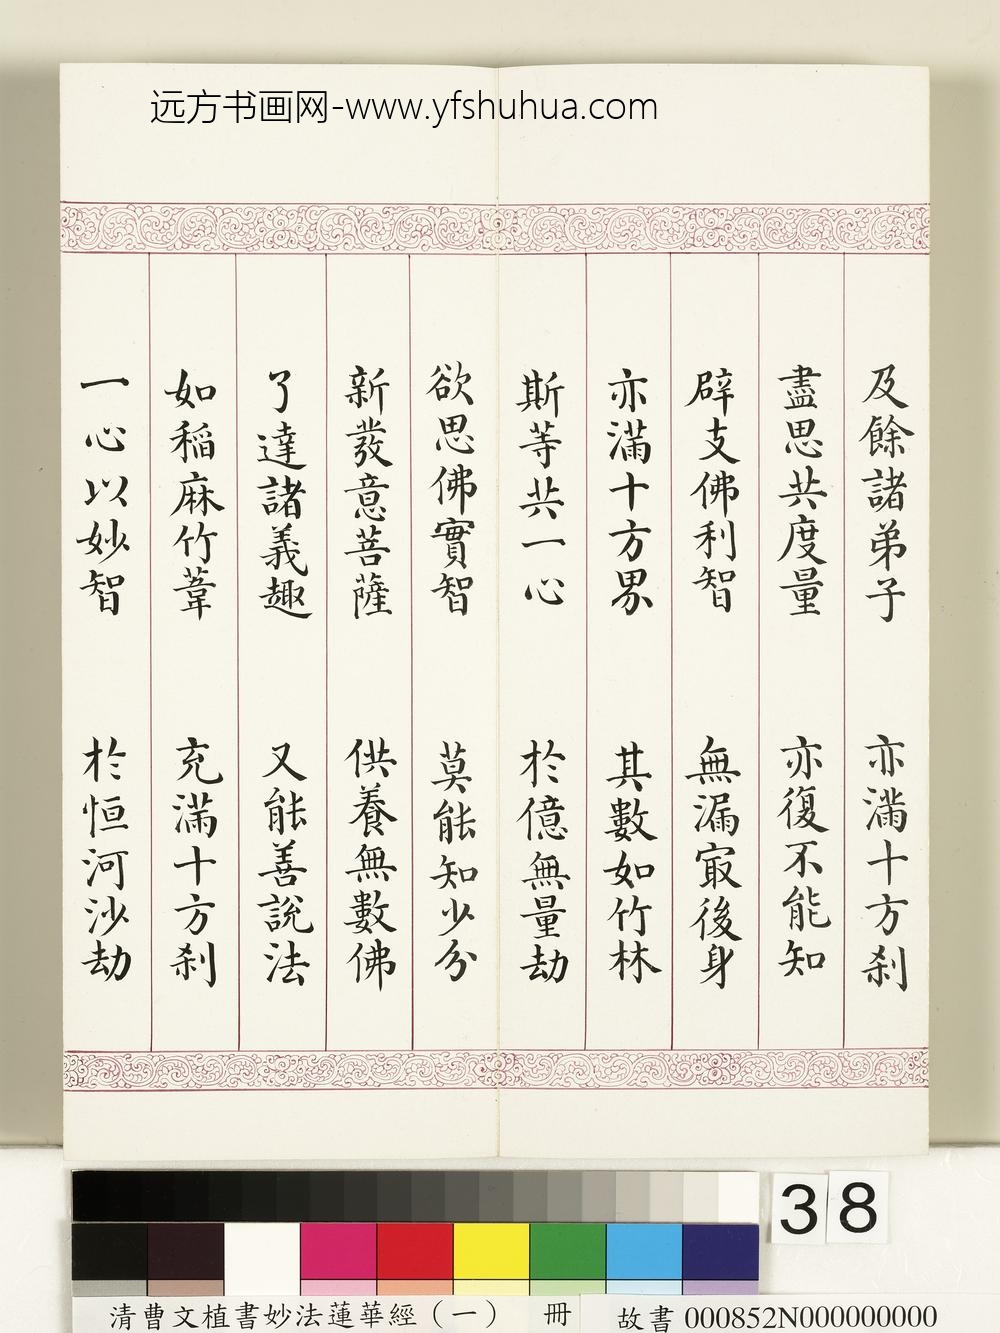 远方书画网-www.yfshuhua.com
及餘諸弟子　亦滿十方刹
盡思共度量　亦復不能知
辟支佛利智　無漏冣後身
亦滿十方界　其數如竹林
斯等共一心　於億無量劫
欲思佛實智　莫能知少分
新發意菩薩　供養無數佛
了達諸義趣　又能善說法
如稻麻竹葦　充滿十方刹
一心以妙智　於恒河沙劫
38
清曹文植書妙法蓮華經（一）　冊　故書000852N000000000